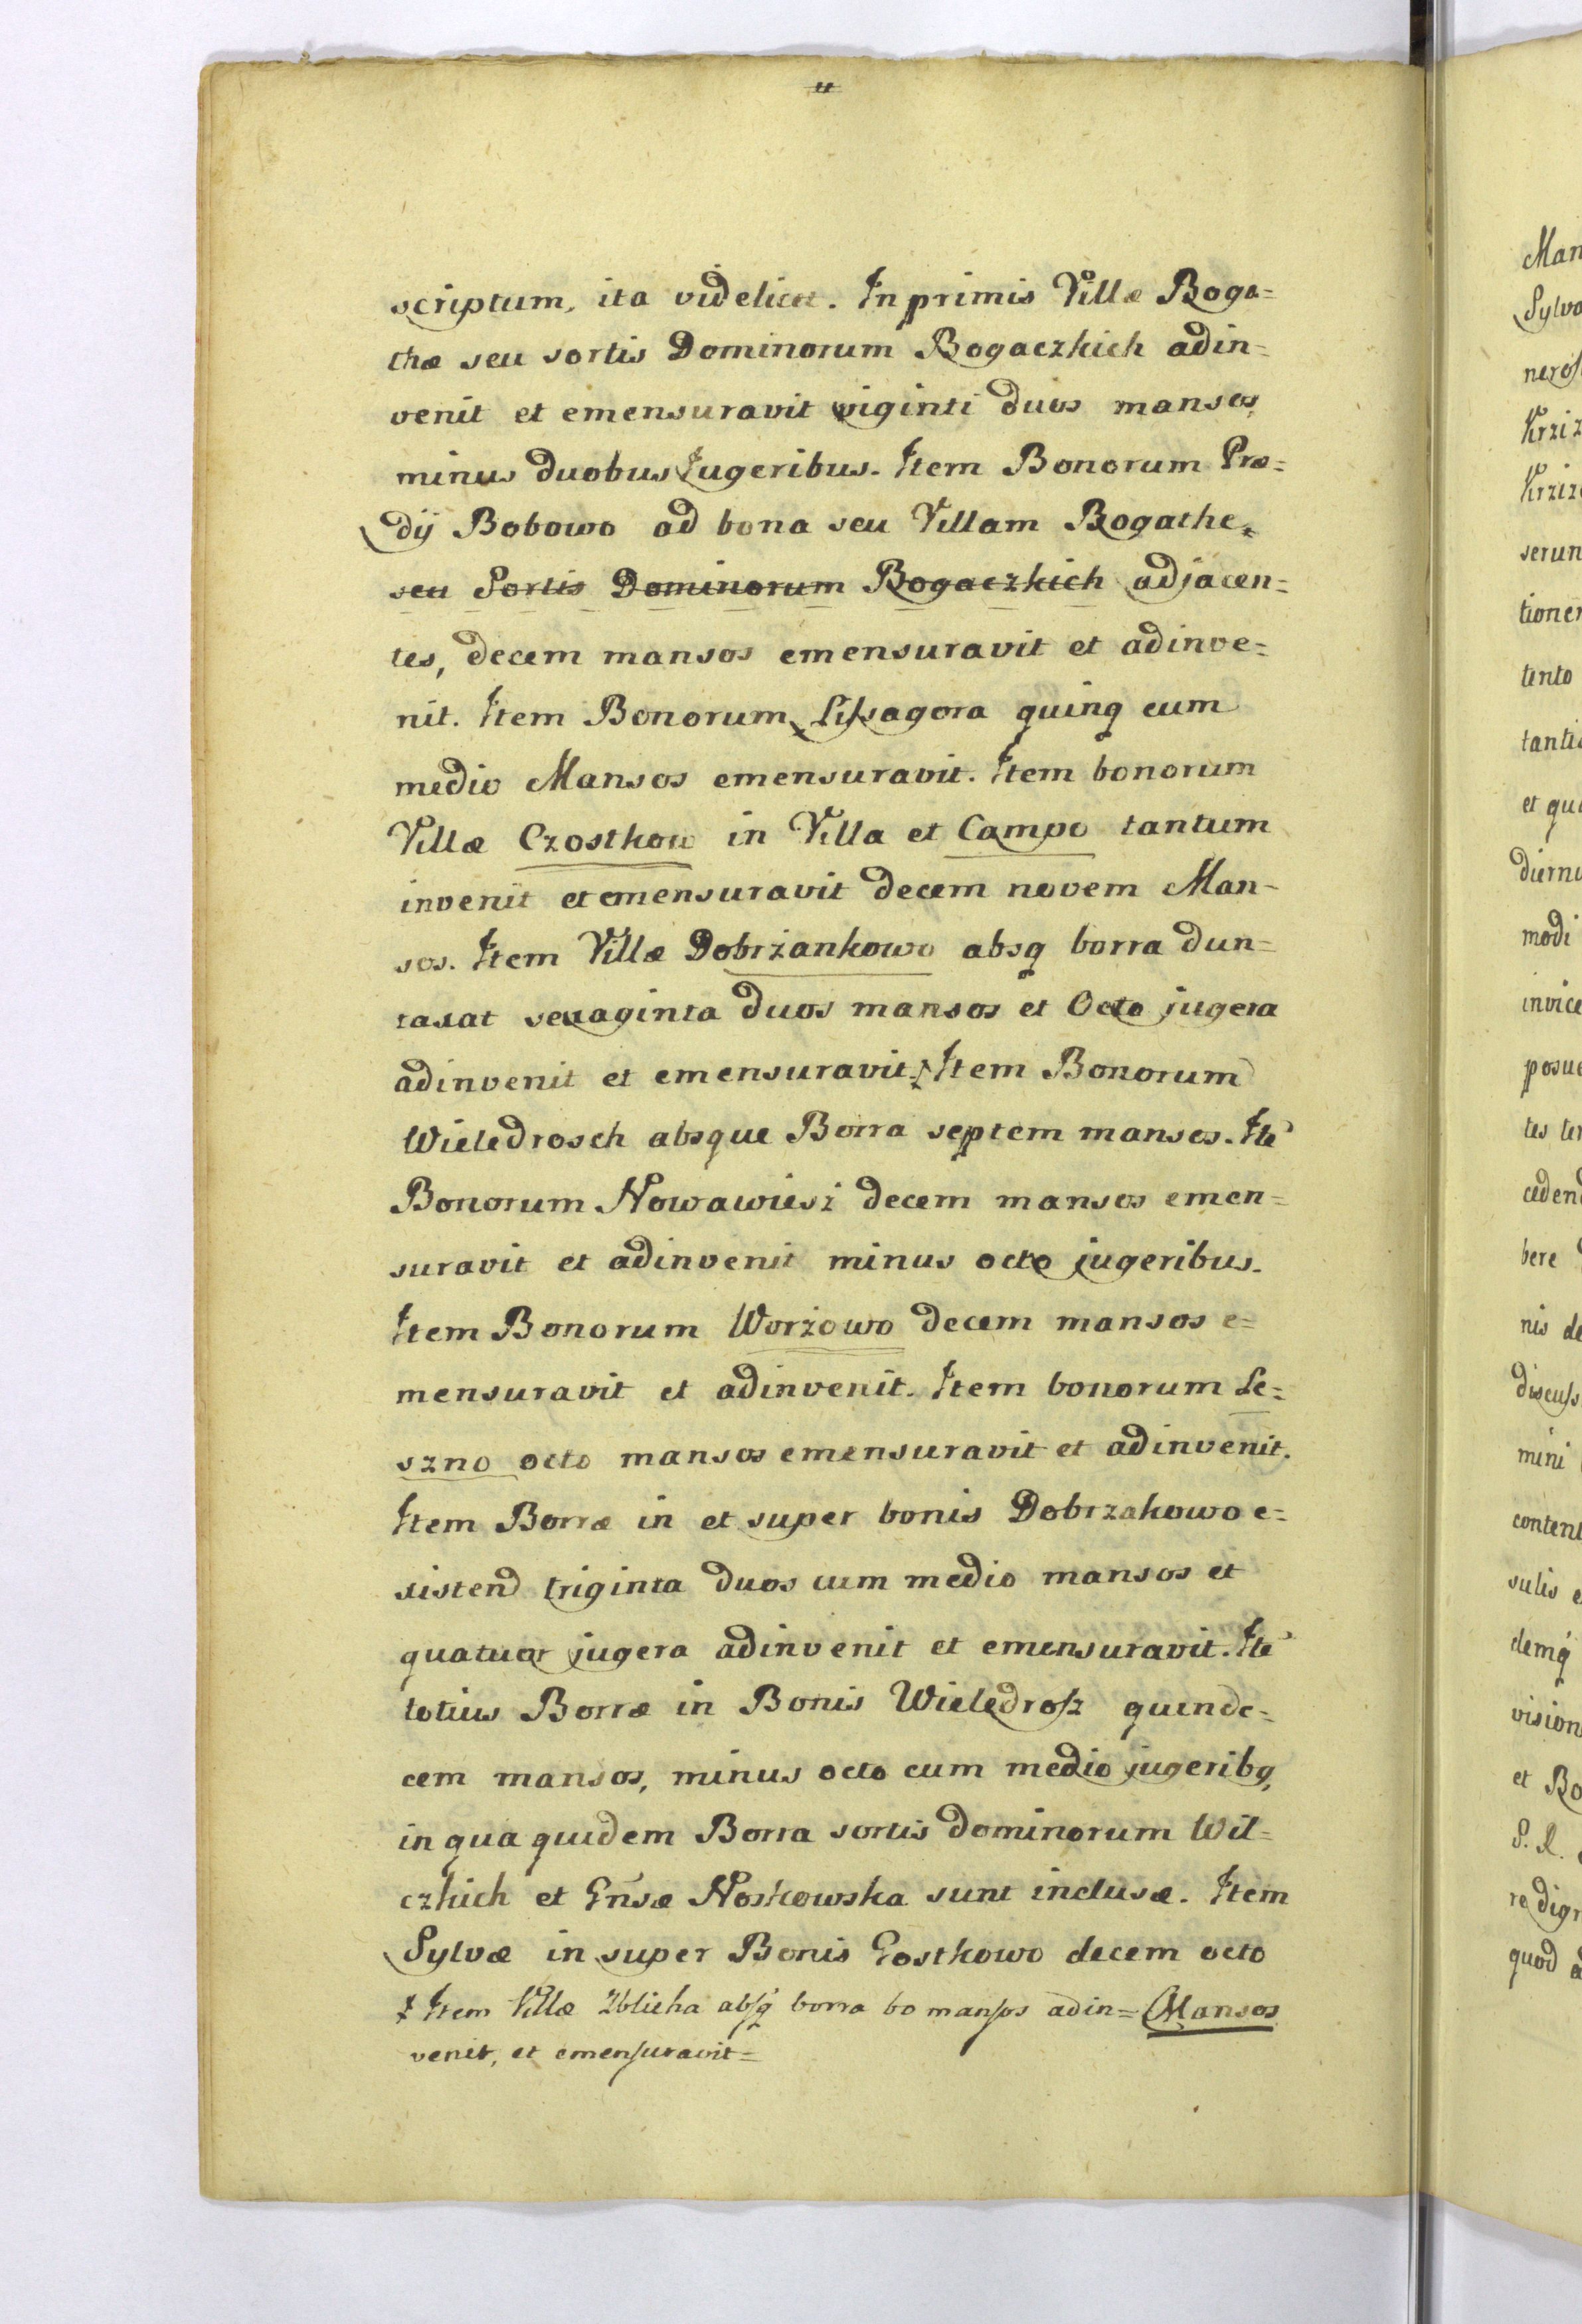 scriptum, ita videlicet. In primis Villæ Boga=
thæ seu sortis Dominorum Bogaczkich adin=
venit et emensuravit viginti duos mansos
minus duobus Jugeribus. Item Bonorum Præ=
dij Bobowo ad bona seu Villam Bogathe,
seu Sortis Dominorum Bogaczkich adjacen=
tes, decem mansos emensuravit et adinve=
nit. Item Bonorum Lissagora quinq cum
medio Mansos emensuravit. Item bonorum
Villæ Czostkow in Villa et Campo tantum
invenit et emensuravit decem novem Man-
sos. Item Villæ Dobrżankowo absq borra dun=
taxat sexaginta duos mansos et Octo jugera
adinvenit et emensuravit. Item Bonorum
Wieledrosch absque Borra septem mansos. Ite
Bonorum Nowawiesż decem mansos emen=
suravit et adinvenit minus octo jugeribus.
Item Bonorum Worżowo decem mansos e=
mensuravit et adinvenit. Item bonorum Le=
szno octo mansos emensuravit et adinvenit.
Item Borræ in et super bonis Dobrzakowo e=
xistend triginta duos cum medio mansos et
quatuor jugera adinvenit et emensuravit. Ite
totius Borræ in Bonis Wieledrosz quinde=
cem mansos, minus octo cum medio jugeribq,
in qua quidem Borra sortis dominorum Wil=
czkich et Gñsæ Noskowska sunt inclusæ. Item
Sylvæ in super Bonis Gostkowo decem octo
Mansos
ɫ Item Villæ Zblicha absq borra bo mansos adin=
venit, et emensuravit=
Man
Sylvo
Krziz
serun
tioner
tento
et qui
modi
invice
posue
cedend
bere
nis de
discuss
mini
content
sulis e
demq
vision
et Bo
quod